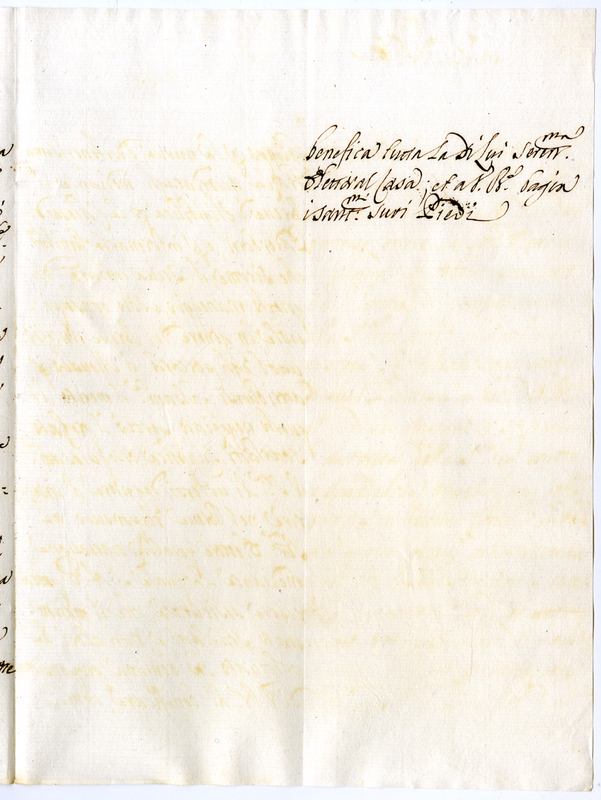 benefica tutta la di lui Seren.ma
Elettoral Casa; et a V. B.e bagia
i Sant.mi Suoi Piedi